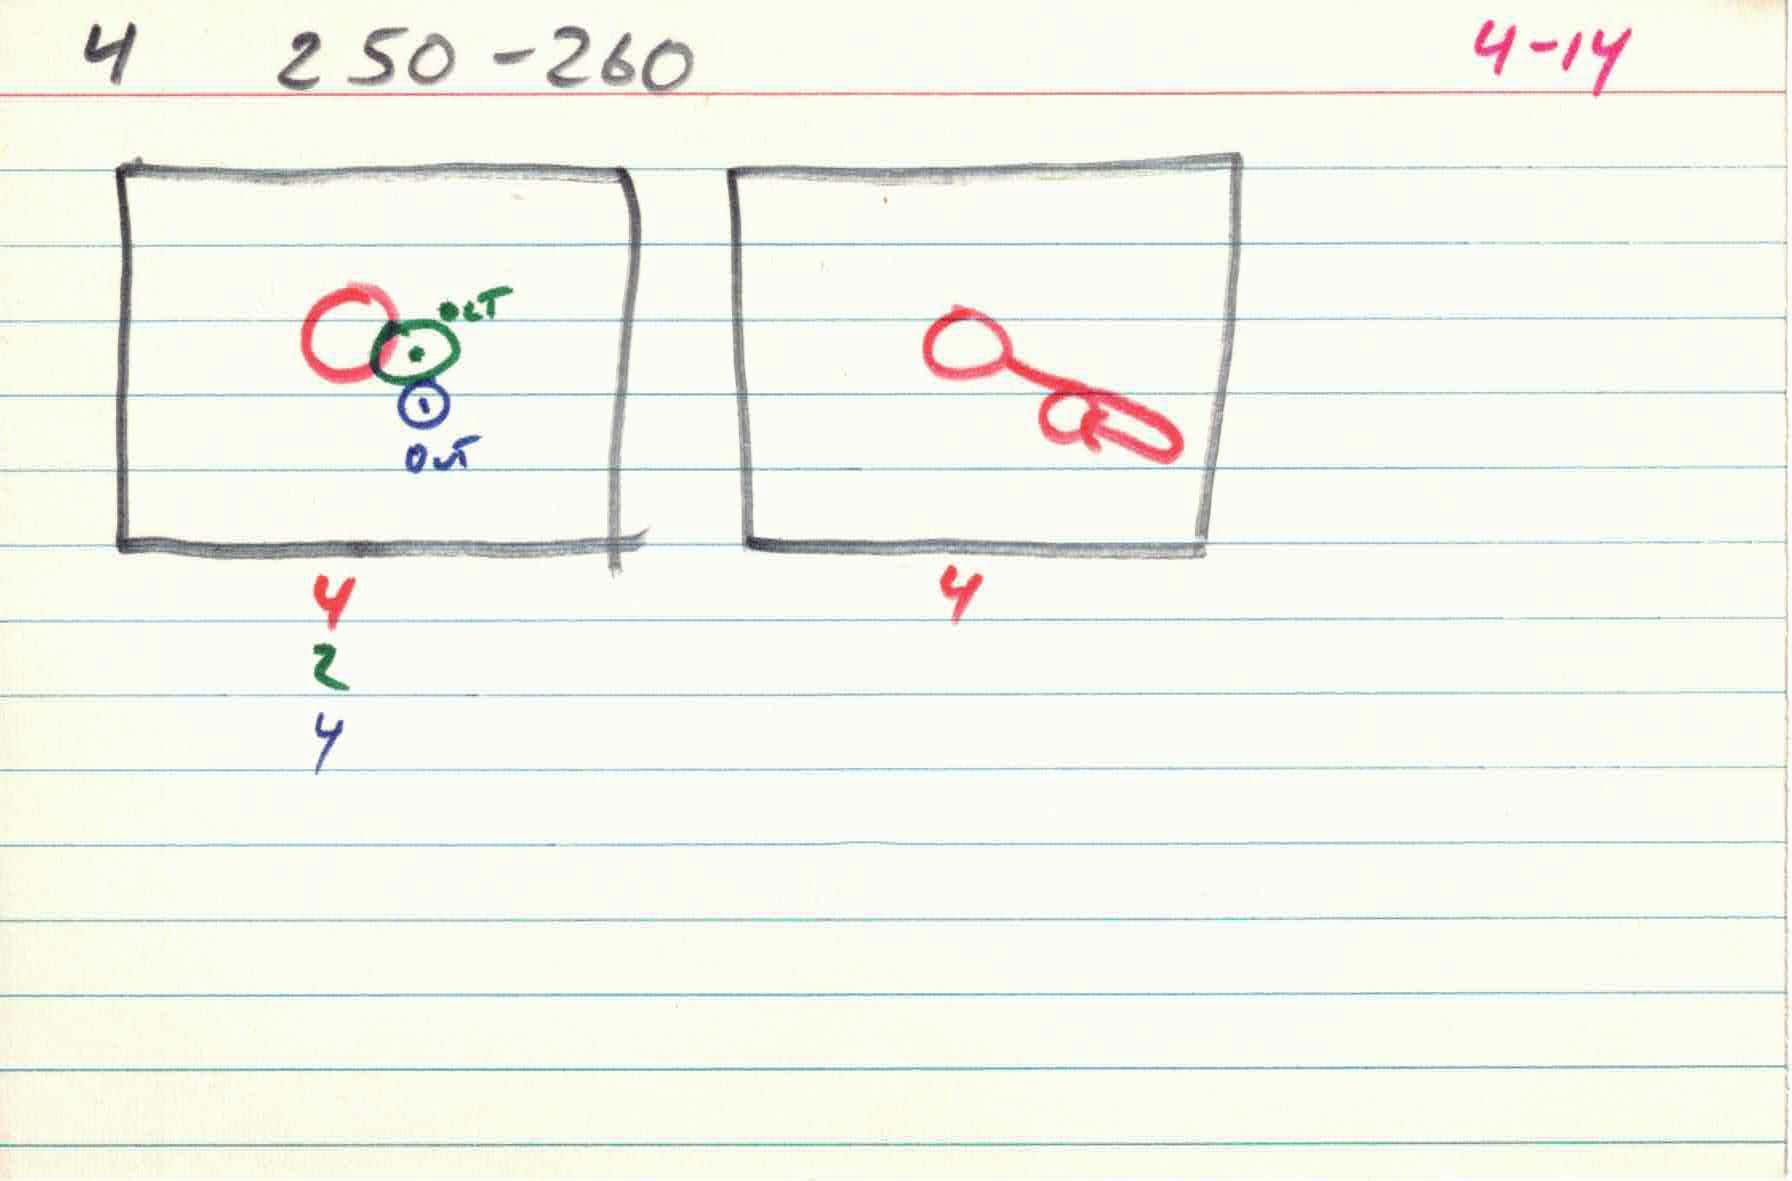 4 250-260 4-14
OUT
OUT
4 4
2
4